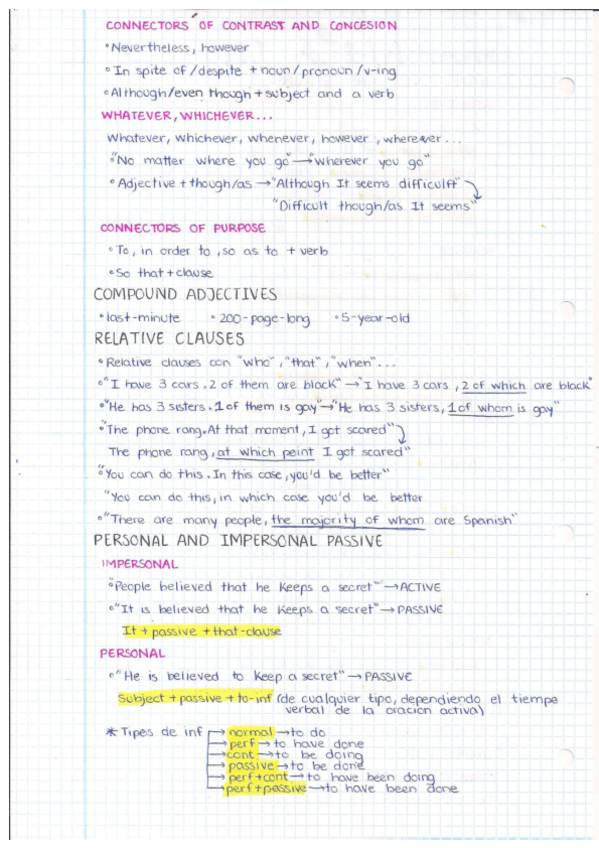 CONNECTORS OF CONTRAST AND CONCESION
• Nevertheless, however
• In spite of /despite + noun/pronoun/v-ing
• Although/even though + subject and a verb
WHATEVER, WHICHEVER...
Whatever, whichever, whenever, however, wherever...
• "No matter where you go" → "wherever you go"
• Adjective + though/as → "Although It seems difficult"
"Difficult though/as It seems"
CONNECTORS OF PURPOSE
• To, in order to, so as to + verb
• So that + clause
COMPOUND ADJECTIVES
• last-minute • 200-page-long • 5-year-old
RELATIVE CLAUSES
• Relative clauses con "who", "that", "when"...
• "I have 3 cars. 2 of them are black" → "I have 3 cars, 2 of which are black"
• "He has 3 sisters. 1 of them is gay" → "He has 3 sisters, 1 of whom is gay"
• "The phone rang. At that moment, I got scared"
The phone rang, at which point I got scared"
• "You can do this. In this case, you'd be better"
"You can do this, in which case you'd be better
• "There are many people, the majority of whom are Spanish"
PERSONAL AND IMPERSONAL PASSIVE
IMPERSONAL
• "People believed that he keeps a secret" → ACTIVE
• "It is believed that he keeps a secret" → PASSIVE
It + passive + that-clause
PERSONAL
• "He is believed to keep a secret" → PASSIVE
Subject + passive + to-inf (de cualquier tipo, dependiendo el tiempo
verbal de la oracion activa)
* Tipes de inf → normal → to do
→ perf → to have done
→ cont → to be doing
→ passive → to be done
→ perf + cont → to have been doing
→ perf + passive → to have been done